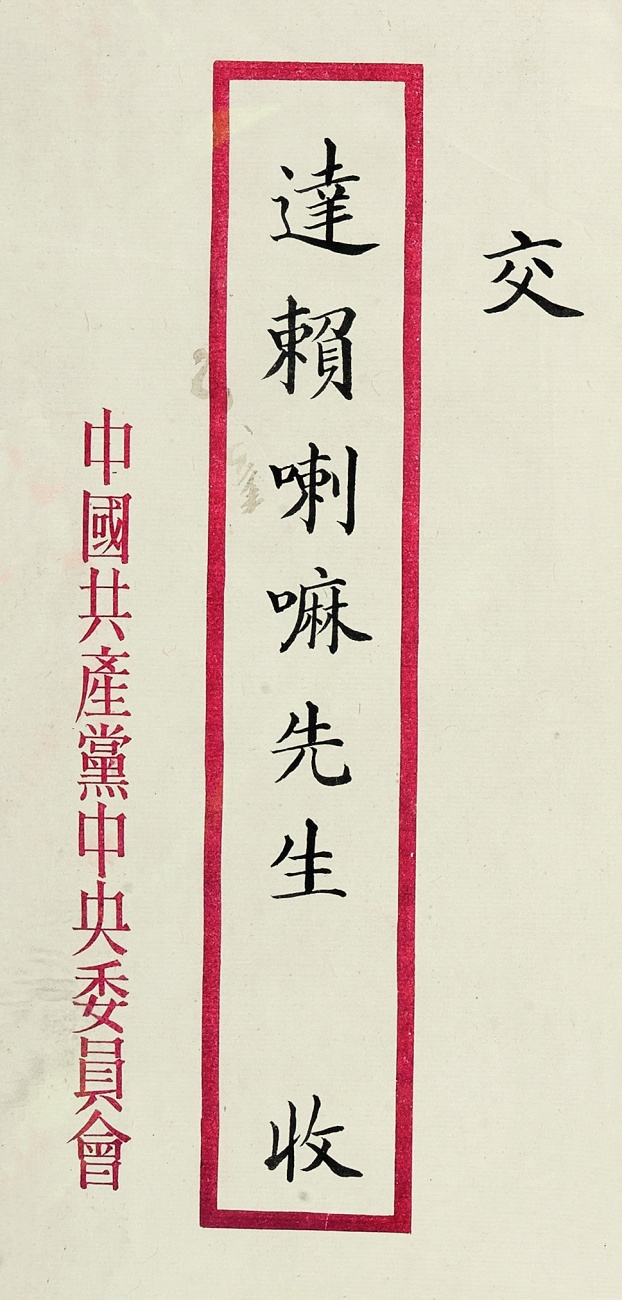 交
達賴喇嘛先生 收
中國共產黨中央委員會